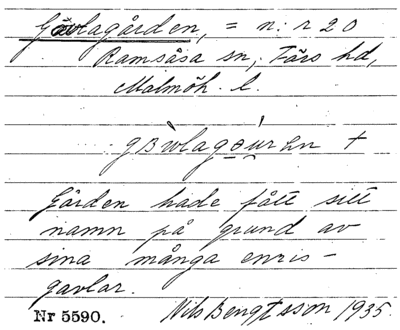 Gavlagården, = n: r 20
Ramsåsa sn, Färs hd,
Malmöh. l.
Gården hade fått sitt
namn på grund av
sina många enris-
gavlar.
Nr 5590. Nils Bengtsson 1935.